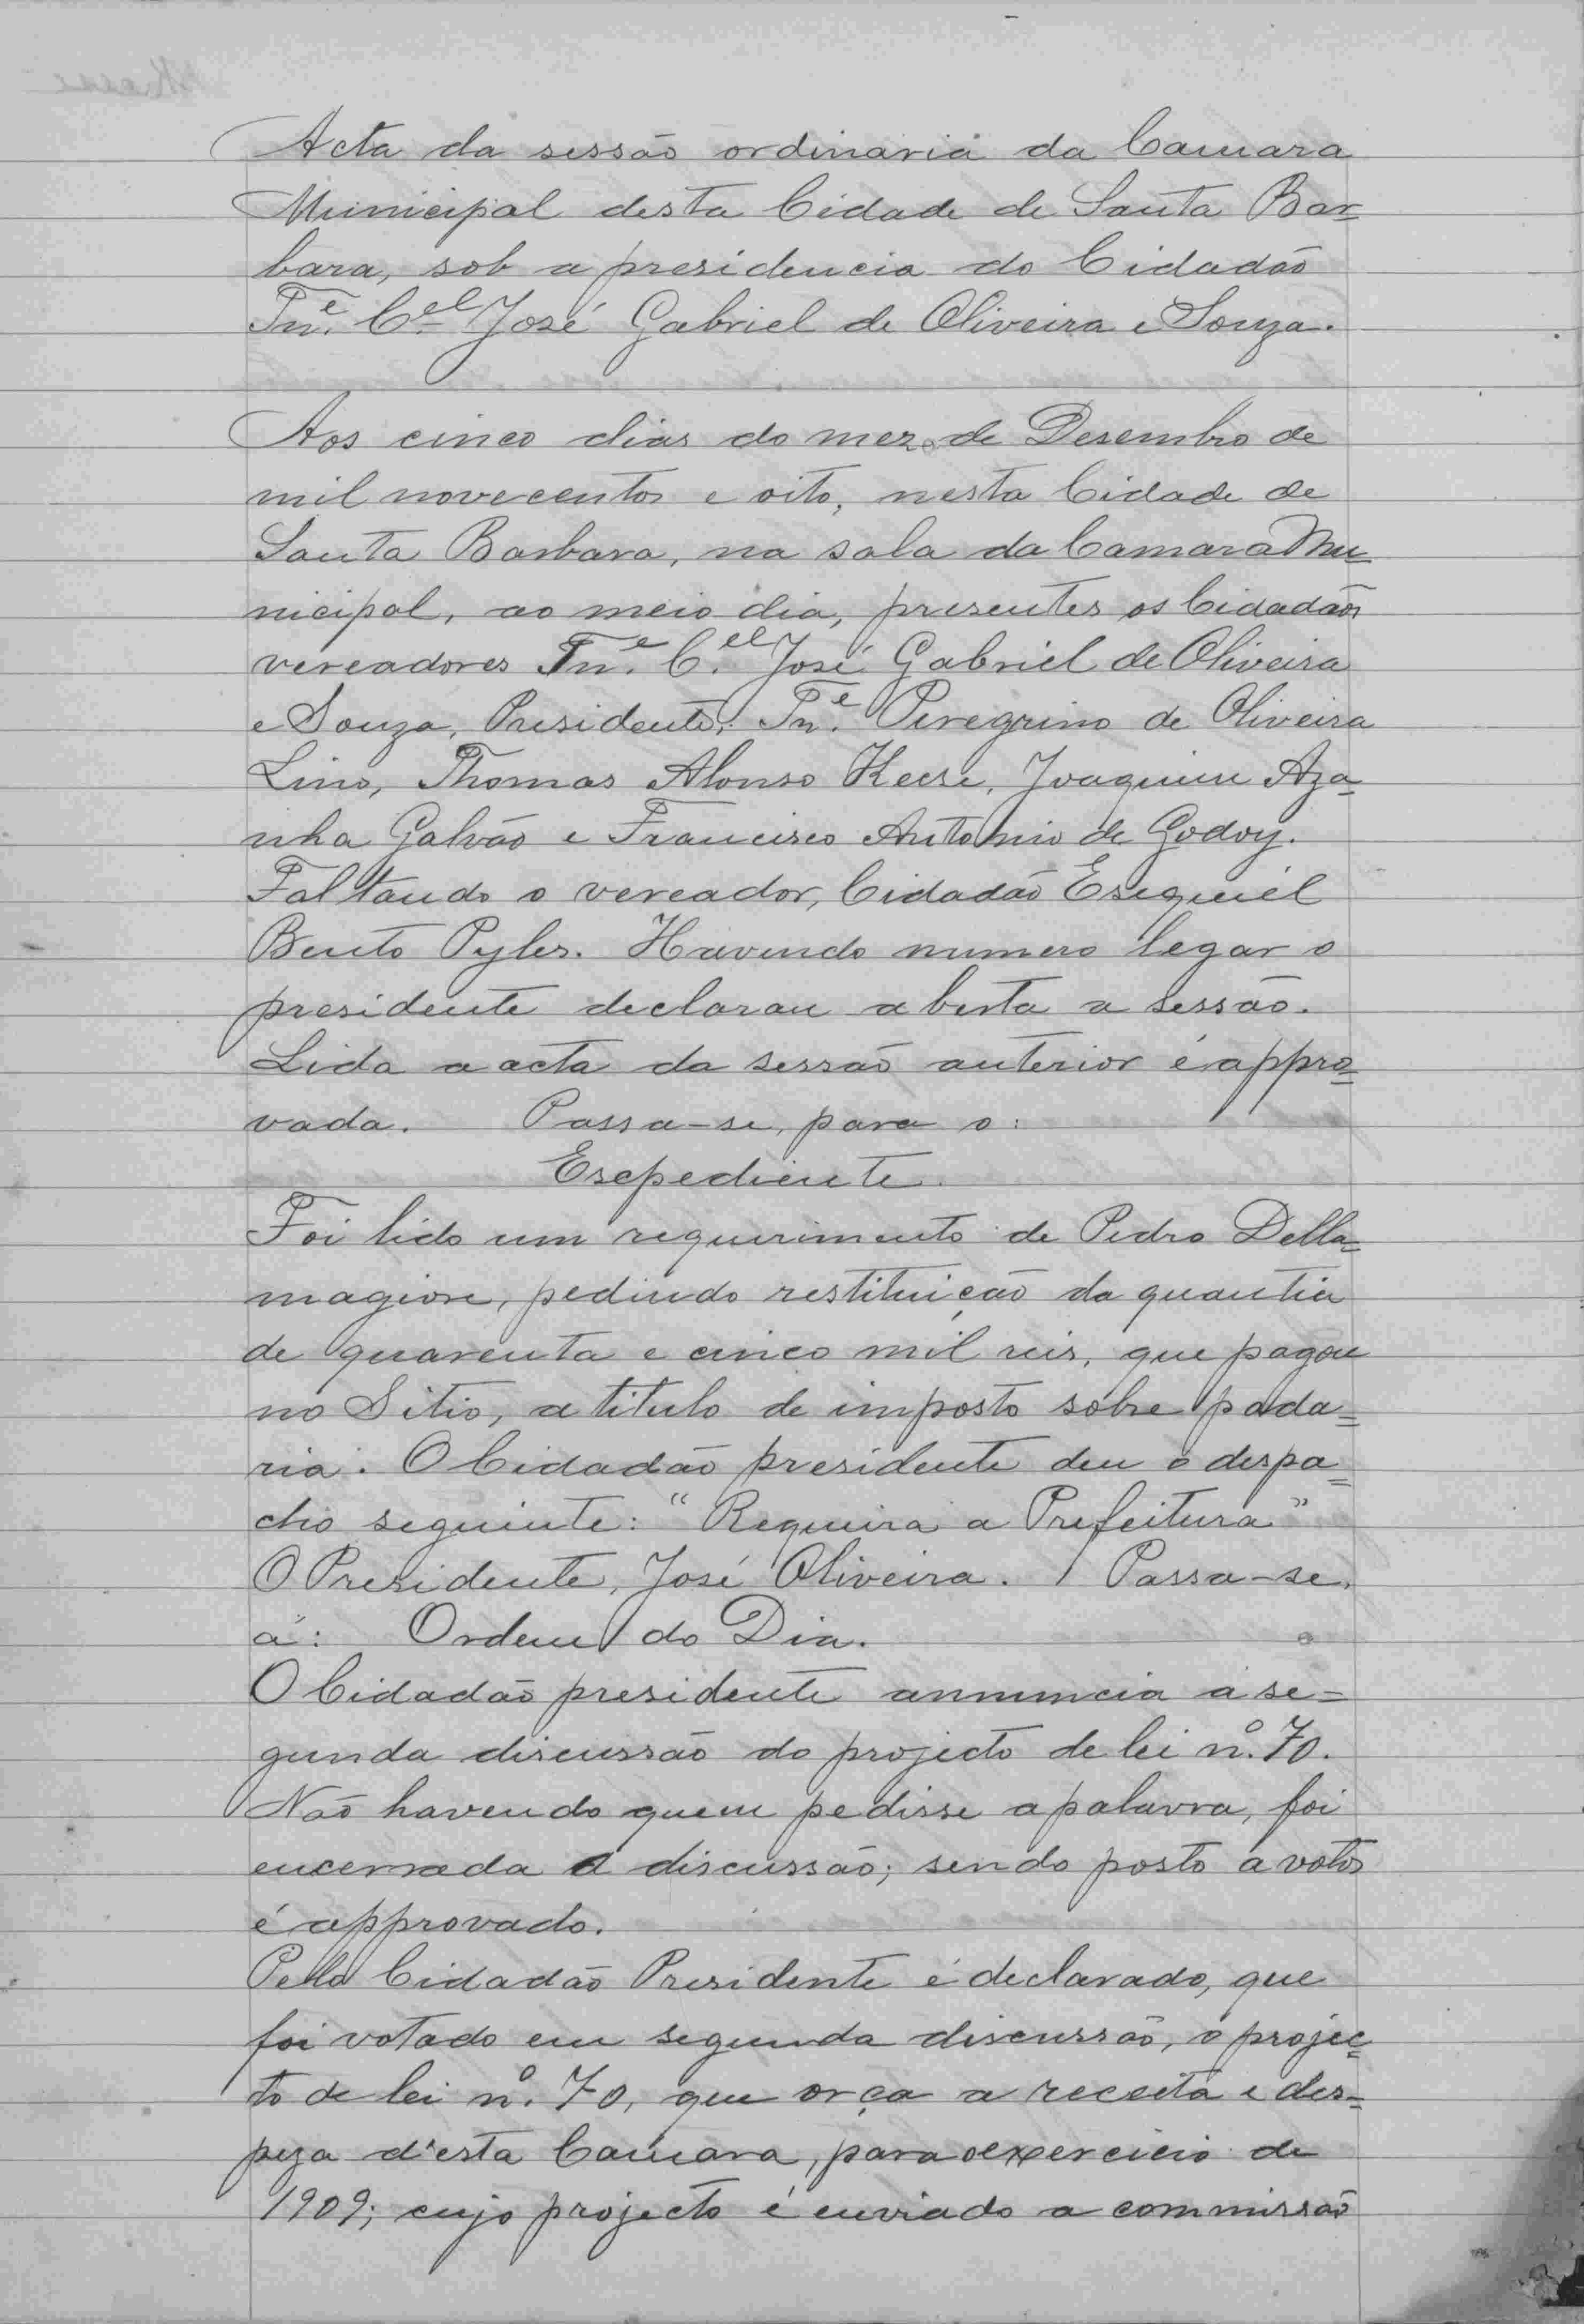 Acta da sessão ordinaria da Camara
Municipal desta Cidade de Santa Bar-
bara, sob a presidencia do Cidadão
Tn.e C.el José Gabriel de Oliveira e Souza.
Aos cinco dias do mez de Desembro de
mil novecentos e oito, nesta Cidade de
Santa Barbara, na sala da Camara Mu-
nicipal, ao meio dia, presentes os Cidadãos
vereadores Tn.e C.el José Gabriel de Oliveira
e Souza, Presidente, Tn.e Peregrino de Oliveira
Lino, Thomas Alonso Keese, Joaquim Aza-
nha Galvão e Francisco Antonio de Godoy.
Faltando o vereador, Cidadão Esequiél
Bento Pyles. Havendo numero legar o
presidente declarou aberta a sessão.
Lida a acta da sessão anterior é appro=
vada. Passa-se, para o:
Expediente.
Foi lido um requerimento de Pedro Della=
magiore, pedindo restituição da quantia
de quarenta e cinco mil reis, que pagou
no Sitio, a titulo de imposto sobre pada=
ria. O Cidadão presidente deu o despa=
cho seguinte: "Requeira a Prefeitura"
O Presidente, José Oliveira. Passa-se,
á: Ordem do Dia.
O Cidadão presidente annuncia a se=
gunda discussão do projecto de lei nº. 70.
Não havendo quem pedisse a palavra, foi
encerrada a discussão; sendo posto a votos
é approvado.
Pello Cidadão Presidente é declarado, que
foi votado em segunda discussão, o projec=
to de lei nº. 70, que orça a receita e des=
peza d'esta Camara, para o exercicio de
1909; cujo projecto é enviado a commissão